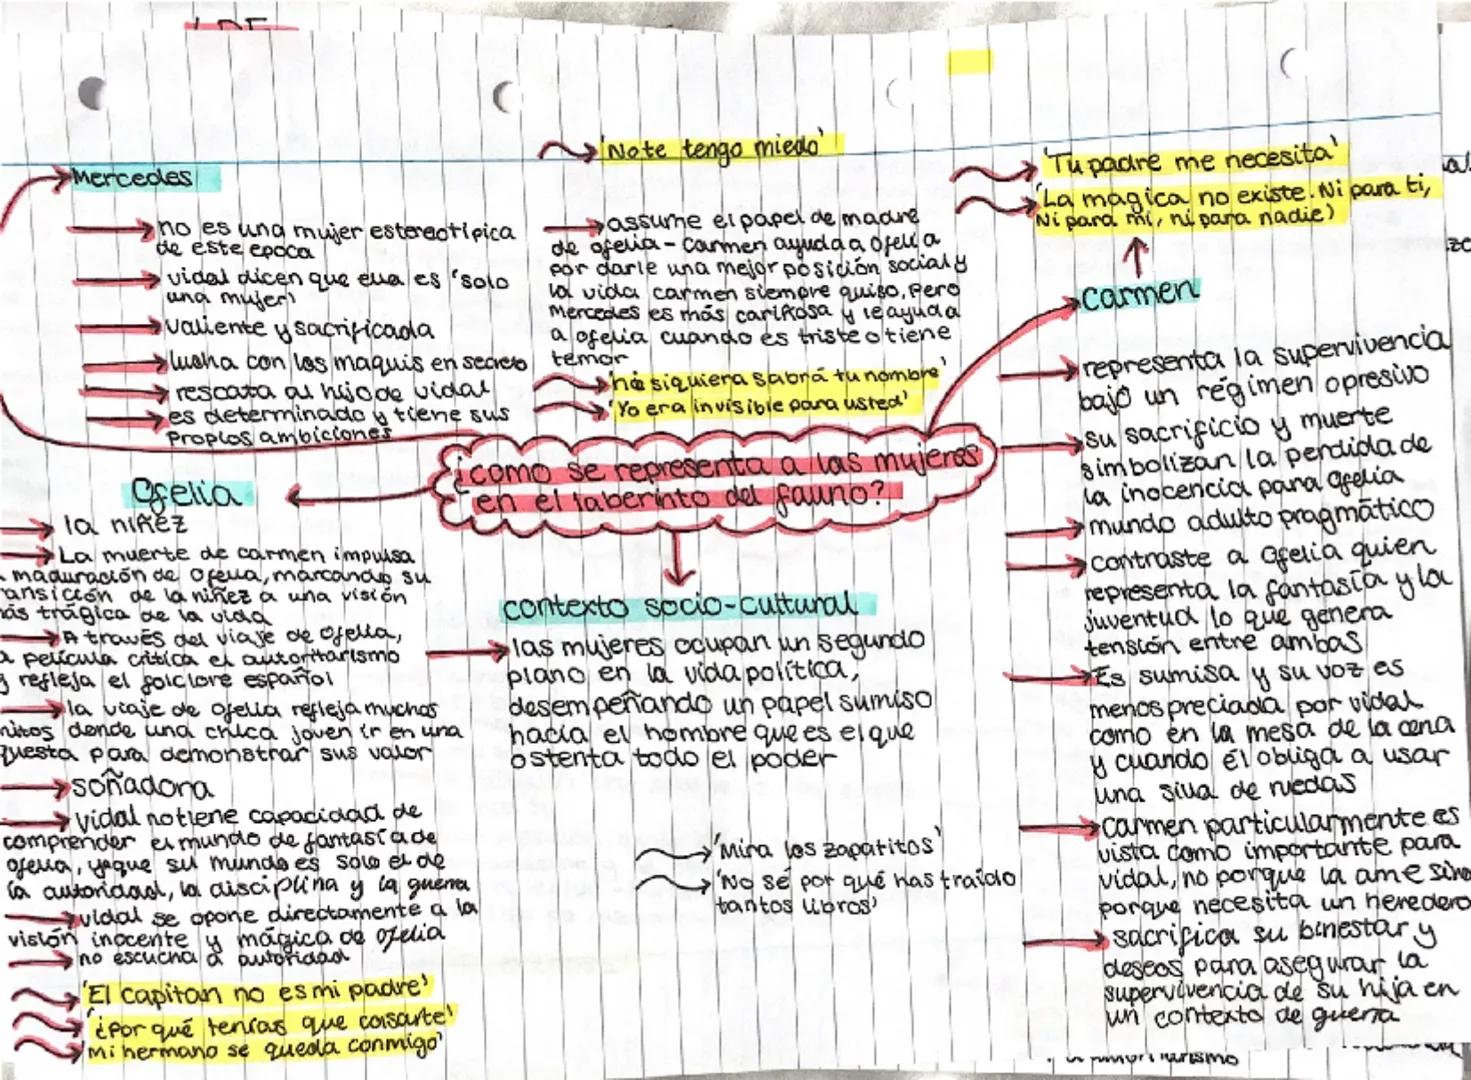 Mercedes
no es una mujer estereotipica
de este epoca
vidal dicen que ella es 'solo
una mujer'
valiente y sacrificada
lucha con los maquis en secreto
rescata al hijo de vidal
es determinado y tiene sus
propios ambiciones
'No te tengo miedo'
assume el papel de madre
de ofelia - Carmen ayuda a Ofelia
por darle una mejor posición social y
la vida carmen siempre quiso. Pero
Mercedes es más cariñosa y le ayuda
a ofelia cuando es triste o tiene
temor
siquiera sabrá tu nombre'
'Yo era invisible para usted'
'Tu padre me necesita'
'La magica no existe. Ni para ti,
Ni para mí, ni para nadie)
Carmen
representa la supervivencia
bajo un régimen opresivo
su sacrificio y muerte
simbolizan la perdida de
la inocencia para ofelia
mundo adulto pragmático
contraste a ofelia quien
representa la fantasía y la
juventud lo que genera
tensión entre ambas
Es sumisa y su voz es
menospreciada por vidal
como en la mesa de la cena
y cuando él obliga a usar
una silla de ruedas
Carmen particularmente es
vista como importante para
vidal, no porque la ame sino
porque necesita un heredero
sacrifica su binestar y
deseos para asegurar la
supervivencia de su hija en
un contexto de guerra
¿como se representa a las mujeres
en el laberinto del fauno?
Ofelia
la niñez
La muerte de carmen impulsa
maduración de Ofelia, marcando su
ansición de la niñez a una visión
ás trágica de la vida
A través del viaje de Ofelia,
a película critica el autoritarismo
y refleja el folclore español
la viaje de ofelia refleja muchos
mitos donde una chica joven ir en una
questa para demonstrar sus valor
soñadora
vidal no tiene capacidad de
comprender el mundo de fantasía de
ofelia, yaque su mundo es solo el de
la autoridad, la disciplina y la guerra
vidal se opone directamente a la
visión inocente y mágica de Ofelia
no escucha a autoridad
'El capitan no es mi padre'
'¿Por qué tenías que casarte'
'Mi hermano se queda conmigo'
contexto socio-cultural
las mujeres ocupan un segundo
plano en la vida política,
desempeñando un papel sumiso
hacía el hombre que es el que
ostenta todo el poder
'Mira los zapatitos'
'No sé por qué has traído
tantos libros'